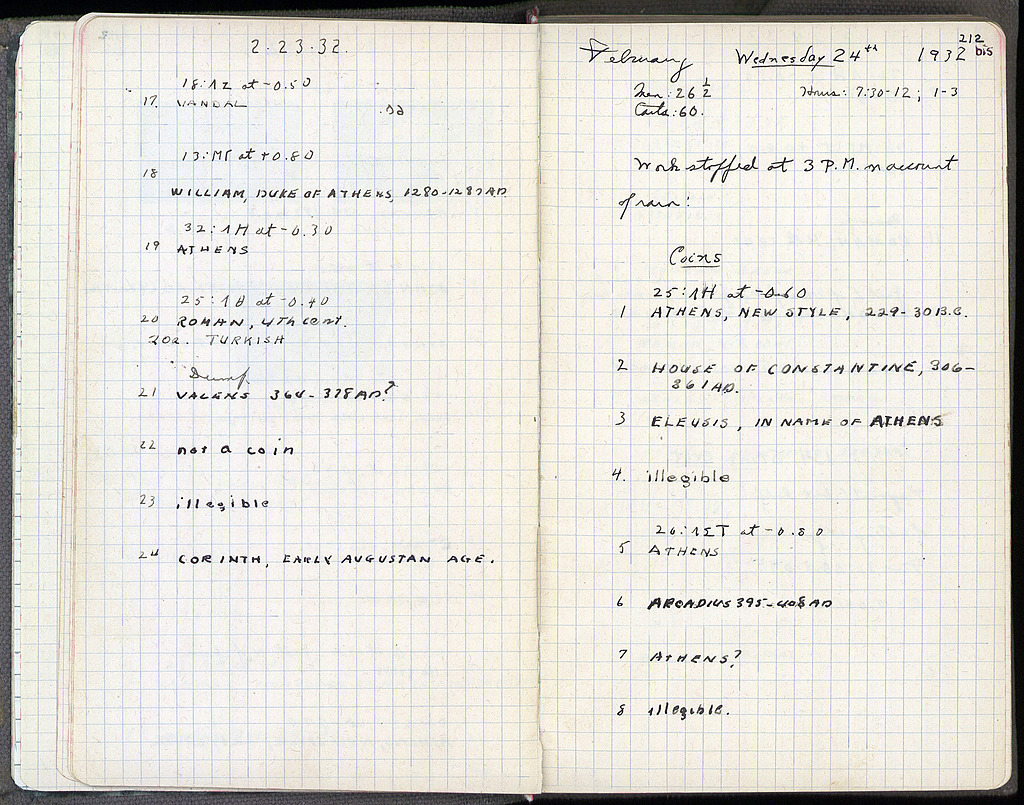 2-23-32.
18:ΛΖ at -0.50
17. VANDAL
13:ΜΓ at +0.80
18
WILLIAM, DUKE OF ATHENS, 1280-1287 AD.
32:ΛΗ at -0.30
19 ATHENS
25:ΛΘ at -0.40
20 ROMAN, 4th cent.
20a. TURKISH
Dump
21 VALENS 364-378 AD?
22 not a coin
23 illegible
24 CORINTH, EARLY AUGUSTAN AGE.
212
bis
February Wednesday 24th 1932
Men: 26 1/2 Hours: 7:30-12; 1-3
Carts: 60.
Work stopped at 3 P.M. on account
of rain:
Coins
25:ΛΗ at -0.60
1 ATHENS, NEW STYLE, 229-30 B.C.
2 HOUSE OF CONSTANTINE, 306-
361 AD.
3 ELEUSIS, IN NAME OF ATHENS
4. illegible
26:ΛΣΤ at -0.80
5 ATHENS
6 ARCADIUS 395-408 AD
7 ATHENS?
8 illegible.